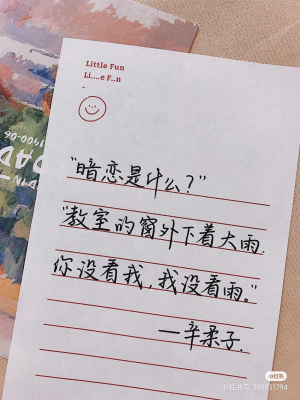 Little Fun
Li....e F..n
"暗恋是什么?"
"教室的窗外下着大雨.
你没看我,我没看雨."
—辛柔子.
1400-06
DAD
小红书
小红书号:389031794